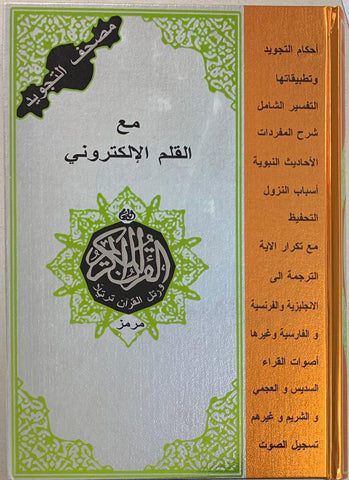 مصحف التجويد
مع
القلم الإلكتروني
القرآن الكريم
ورتل القرآن ترتيلا
مرمز
أحكام التجويد
وتطبيقاتها
التفسير الشامل
شرح المفردات
الأحاديث النبوية
أسباب النزول
التحفيظ
مع تكرار الاية
الترجمة الى
الانجليزية والفرنسية
و الفارسية وغيرها
أصوات القراء
السديس و العجمي
و الشريم و غيرهم
تسجيل الصوت